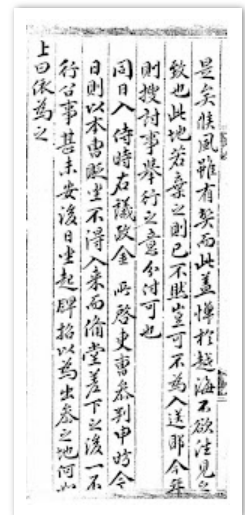 是矣候風雖有弊而此盖憚於越海不欲往見之
致也此地若棄之則已不然豈可不為入送耶今年
則搜討事舉行之意分付可也
同日入侍時右議政金 所啓吏曹參判申時今
日則以本曹貶坐不得入來而備堂差下之後一不
行公事甚未安後日坐起牌招以為出參之地何如
上曰依為之